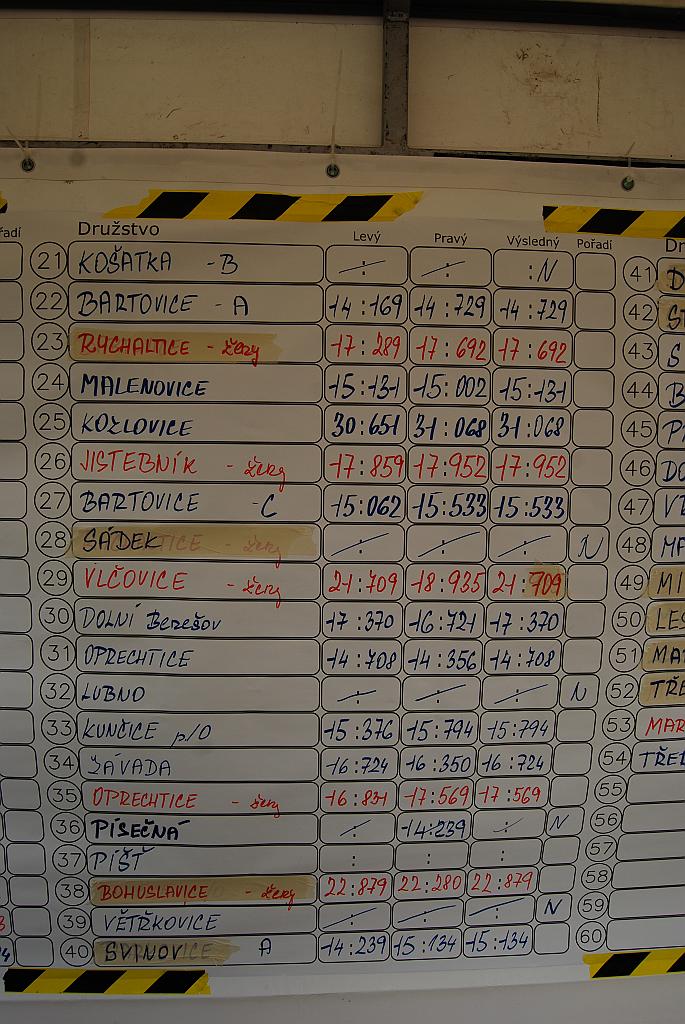 řadí Družstvo Levý Pravý Výsledný Pořadí Dr
21 KOŠATKA - B : : : N 41 D
22 BARTOVICE - A 14:169 14:729 14:729 42
23 RYCHALTICE - ženy 17:289 17:692 17:692 43 S
24 MALENOVICE 15:131 15:002 15:131 44 B
25 KOZLOVICE 30:651 31:068 31:068 45
26 JISTEBNÍK - ženy 17:859 17:952 17:952 46 DO
27 BARTOVICE - C 15:062 15:533 15:533 47
28 SÁDEK : : : N 48
29 VLČOVICE - ženy 21:709 18:935 21:709 49 MI
30 DOLNÍ Benešov 17:370 16:721 17:370 50 LES
31 OPRECHTICE 14:708 14:356 14:708 51 MA
32 LUBNO : : : N 52 TŘE
33 KUNČICE p/O 15:376 15:794 15:794 53 MAR
34 ZÁVADA 16:724 16:350 16:724 54 TŘE
35 OPRECHTICE - ženy 16:831 17:569 17:569 55
36 PÍSEČNÁ : 14:239 : N 56
37 PÍŠŤ : : : 57
38 BOHUSLAVICE - ženy 22:879 22:280 22:879 58
39 VĚTŘKOVICE : : : N 59
40 SVINOVICE A 14:239 15:134 15:134 60